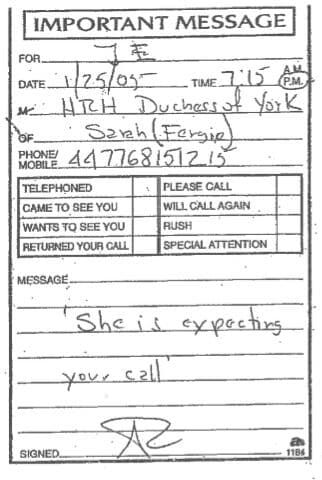 IMPORTANT MESSAGE
FOR JE
DATE 1/25/05 TIME 7:15 A.M. P.M.
M HRH Duchess of York
OF Sarah (Fergie)
PHONE/ MOBILE 447768151215
TELEPHONED PLEASE CALL
CAME TO SEE YOU WILL CALL AGAIN
WANTS TO SEE YOU RUSH
RETURNED YOUR CALL SPECIAL ATTENTION
MESSAGE
'She is expecting
your call'
SIGNED
1184